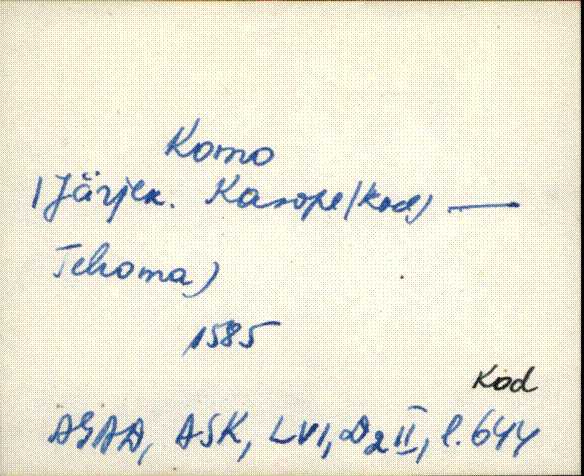 Komo
(Järjek. Kasope(kod) —
Tehoma)
1585
Kod
AGAD, ASK, LVI, D2 II, l. 644